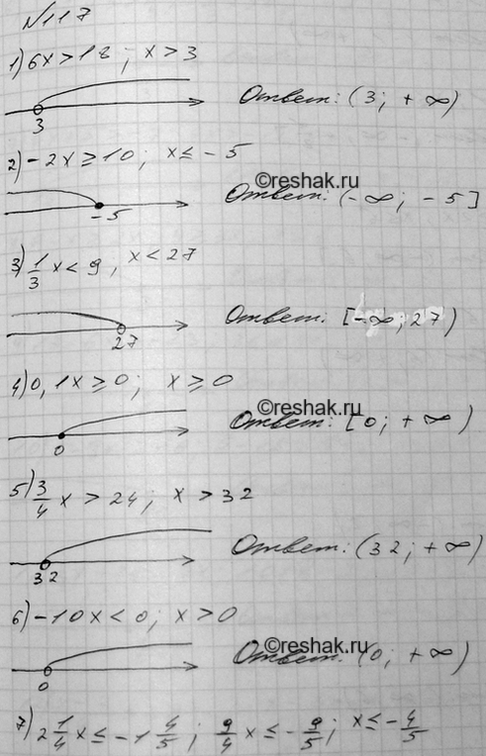 №117
1) 6x > 18; x > 3
3
Ответ: (3; +∞)
2) -2x ≥ 10; x ≤ -5
©reshak.ru
-5
Ответ: (-∞; -5]
3) 1/3 x < 9, x < 27
27
Ответ: [-∞; 27)
4) 0,1x ≥ 0; x ≥ 0
©reshak.ru
0
Ответ: [0; +∞)
5) 3/4 x > 24; x > 32
32
Ответ: (32; +∞)
6) -10x < 0; x > 0
©reshak.ru
0
Ответ: (0; +∞)
7) 2 1/4 x ≤ -1 4/5; 9/4 x ≤ -9/5; x ≤ -4/5